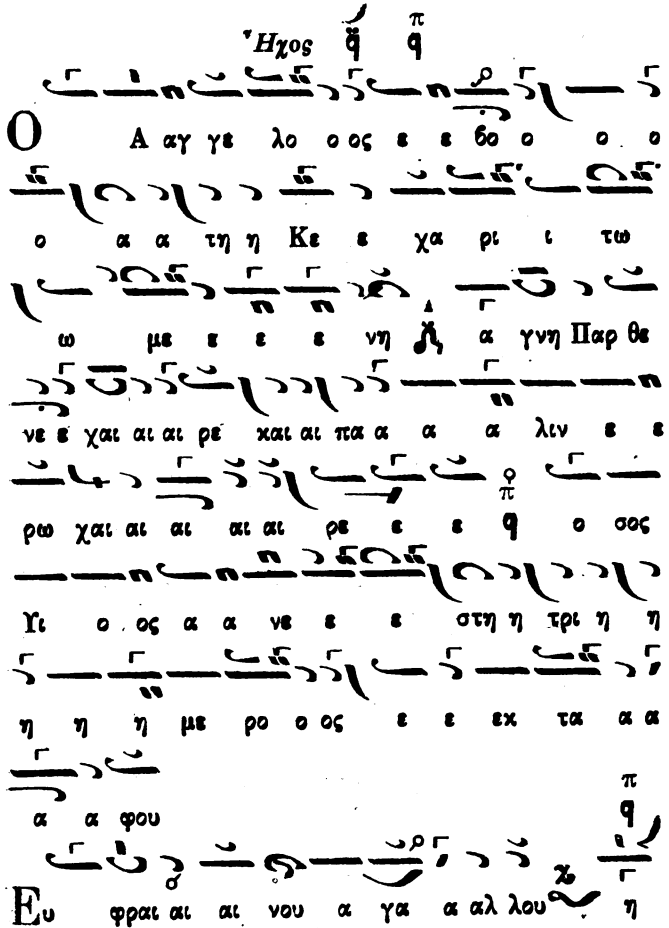 Ἦχος π
Ο Α αγ γε λο ο ος ε ε βο ο ο ο
ο α α τη η Κε ε χα ρι ι τω
ω με ε ε ε νη α γνη Παρ θε
νε ε χαι αι αι ρε και αι πα α α α λιν ε ε
ρω χαι αι αι αι αι ρε ε ε π ο σος
Υι ο ος α α νε ε ε στη η τρι η η
η η η με ρο ο ος ε ε εκ τα α α
α α φου
π
Ευ φραι αι αι νου α γα α αλ λου η